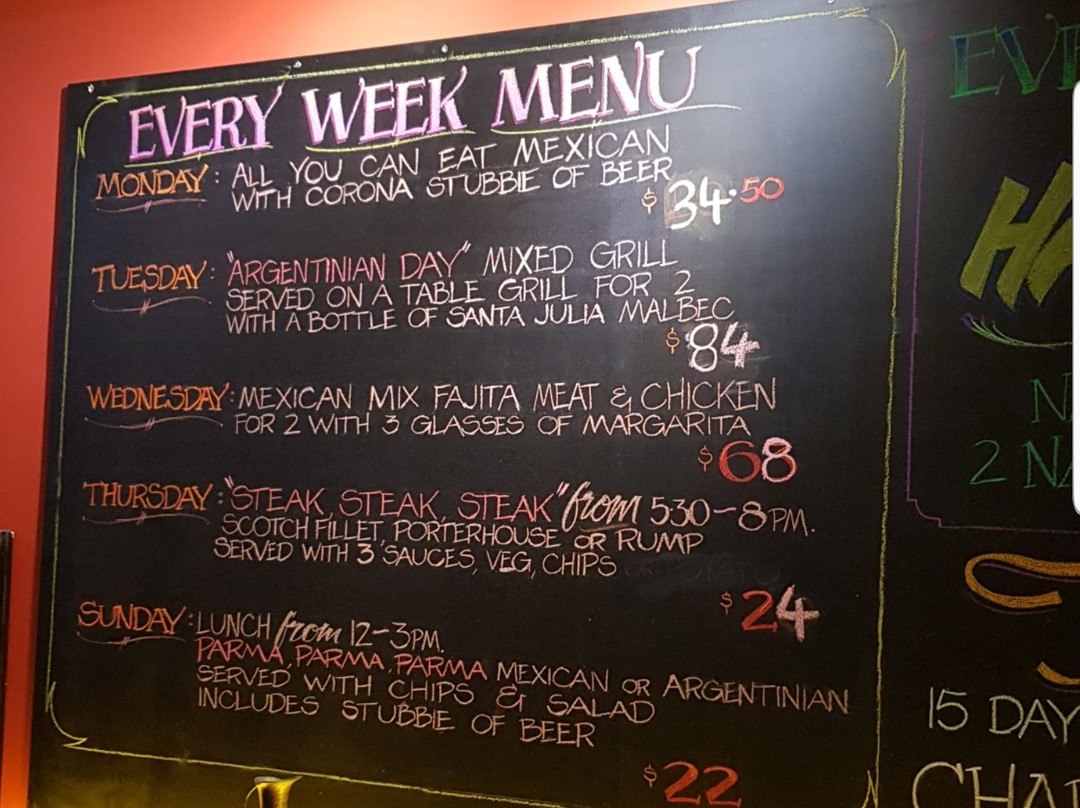 EVERY WEEK MENU
MONDAY: ALL YOU CAN EAT MEXICAN
WITH CORONA STUBBIE OF BEER
$34.50
TUESDAY: "ARGENTINIAN DAY" MIXED GRILL
SERVED ON A TABLE GRILL FOR 2
WITH A BOTTLE OF SANTA JULIA MALBEC
$84
WEDNESDAY: MEXICAN MIX FAJITA MEAT & CHICKEN
FOR 2 WITH 3 GLASSES OF MARGARITA
$68
THURSDAY: "STEAK, STEAK, STEAK" from 530-8PM.
SCOTCH FILLET, PORTERHOUSE OR RUMP
SERVED WITH 3 SAUCES, VEG, CHIPS
$24
SUNDAY: LUNCH from 12-3PM.
PARMA, PARMA, PARMA MEXICAN OR ARGENTINIAN
SERVED WITH CHIPS & SALAD
INCLUDES STUBBIE OF BEER
$22
EVE
HA
N
2 NA
15 DAY
CHA